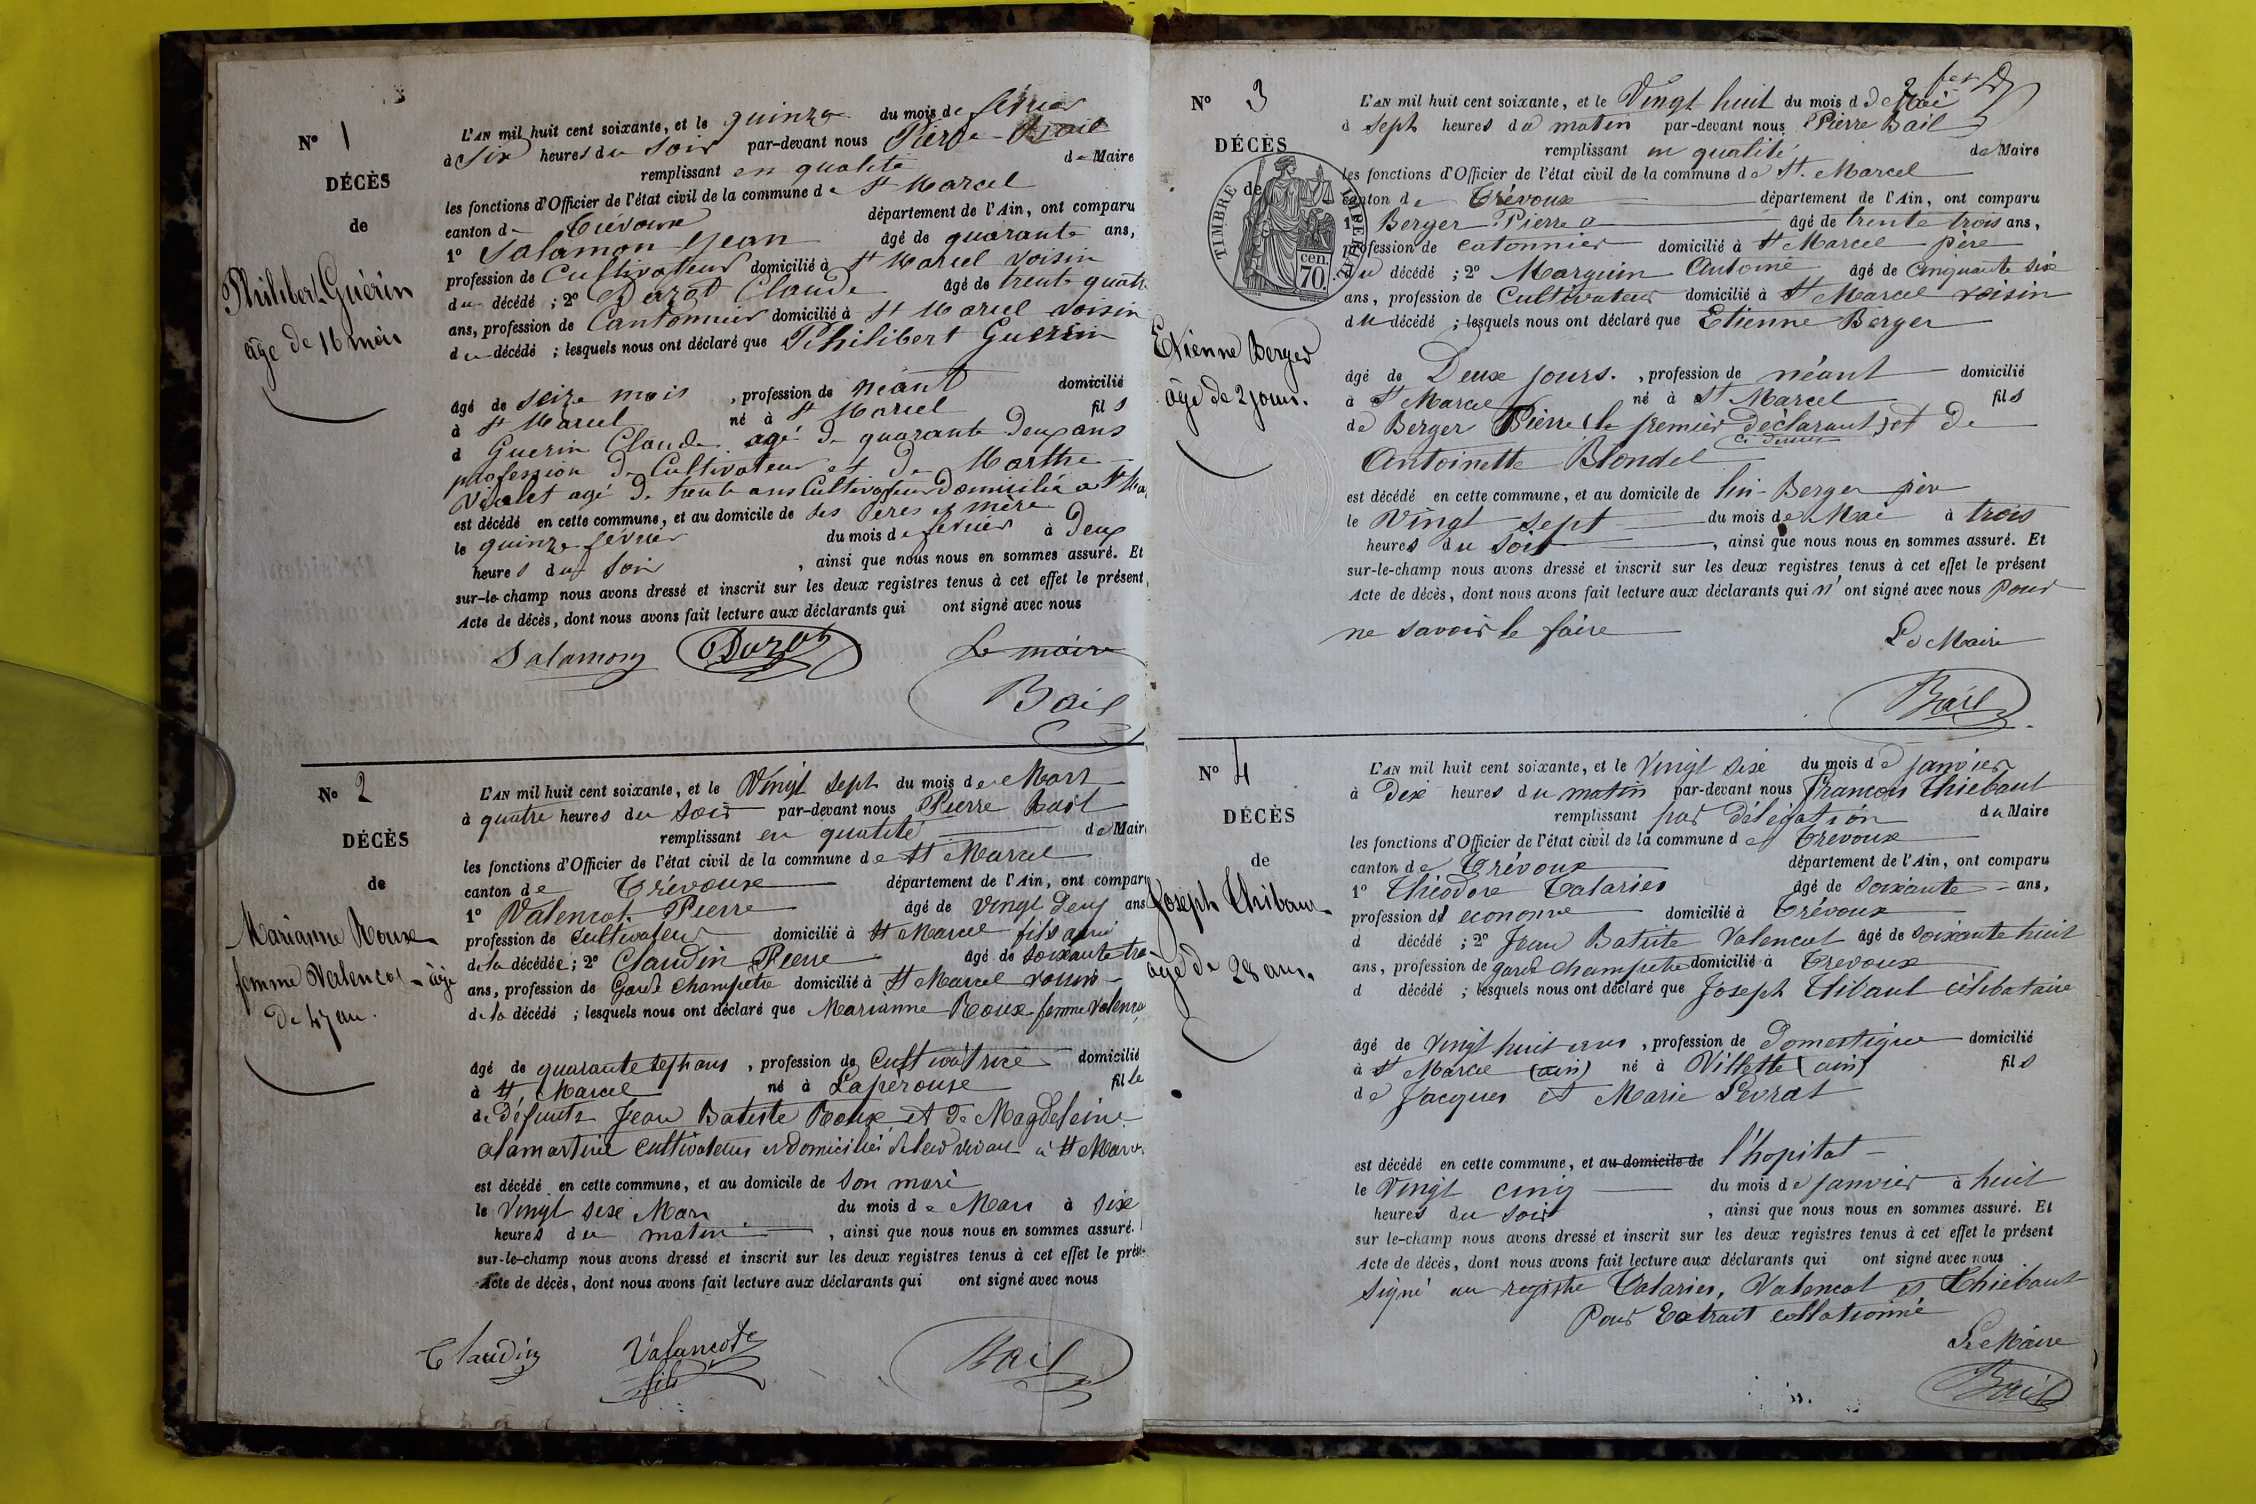 N° 1
DÉCÈS
de
Philibert Guérin
âgé de 16 mois
L'AN mil huit cent soixante, et le quinze du mois de février
à six heures du soir par-devant nous Pierre Bail
remplissant en qualité de Maire
les fonctions d'Officier de l'état civil de la commune de St Marcel
canton de Trévoux département de l'Ain, ont comparu
1° Salamon Jean âgé de quarante ans,
profession de Cultivateur domicilié à St Marcel voisin
du décédé ; 2° Durot Claude âgé de trente quatre
ans, profession de Cantonnier domicilié à St Marcel voisin
du décédé ; lesquels nous ont déclaré que Philibert Guérin
âgé de seize mois , profession de néant domicilié
à St Marcel né à St Marcel fils
d Guerin Claude agé de quarante deux ans
profession de Cultivateur et de Marthe
agé de trente ans Cultivateur Domicilié a St Mar
est décédé en cette commune, et au domicile de ses pères et mère
le quinze fevrier du mois de fevrier à Deux
heures du soir , ainsi que nous nous en sommes assuré. Et
sur-le-champ nous avons dressé et inscrit sur les deux registres tenus à cet effet le présent
Acte de décès, dont nous avons fait lecture aux déclarants qui ont signé avec nous
Salamon Durot Le maire
Bail
N° 2
DÉCÈS
de
Marianne Roux
femme Valencot âgé
de 47 an.
L'AN mil huit cent soixante, et le Vingt sept du mois de Mars
à quatre heures du soir par-devant nous Pierre Bail
remplissant en qualité de Maire
les fonctions d'Officier de l'état civil de la commune de St Marcel
canton de Trévoux département de l'Ain, ont comparu
1° Valencot Pierre âgé de vingt deux ans
profession de cultivateur domicilié à St Marcel fils ainé
de la décédée ; 2° Claudin Pierre âgé de soixante tro
ans, profession de Garde Champetre domicilié à St Marcel voisin
de la décédé ; lesquels nous ont déclaré que Marianne Roux femme Valenco
âgé de quarante sept ans , profession de Cultivatrice domicilié
à St Marcel né à Lapérouse fille
de défunts Jean Batiste Roux et de Magdeleine
Alamartine cultivateurs et domiciliés de leur vivant à St Marc
est décédé en cette commune, et au domicile de son mari
le vingt six Mars du mois de Mars à six
heures du matin , ainsi que nous nous en sommes assuré.
sur-le-champ nous avons dressé et inscrit sur les deux registres tenus à cet effet le prése
Acte de décès, dont nous avons fait lecture aux déclarants qui ont signé avec nous
Claudin Valancot Bail
fils
N° 3
DÉCÈS
de
TIMBRE IMPERIAL
cen.
70.
Etienne Berger
âgé de 2 jours.
L'AN mil huit cent soixante, et le Vingt huit du mois d de Mai
à sept heures du matin par-devant nous Pierre Bail
remplissant en qualité de Maire
les fonctions d'Officier de l'état civil de la commune de St Marcel
canton de Trévoux département de l'Ain, ont comparu
1° Berger Pierre âgé de trente trois ans,
profession de cotonnier domicilié à St Marcel père
du décédé ; 2° Marguin Antoine âgé de cinquante six
ans, profession de Cultivateur domicilié à St Marcel voisin
du décédé ; lesquels nous ont déclaré que Etienne Berger
âgé de Deux jours. , profession de néant domicilié
à St Marcel né à St Marcel fils
de Berger Pierre (le premier déclarant) et de
Antoinette Blondel
est décédé en cette commune, et au domicile de lui Berger père
le Vingt sept du mois de Mai à trois
heures du soir , ainsi que nous nous en sommes assuré. Et
sur-le-champ nous avons dressé et inscrit sur les deux registres tenus à cet effet le présent
Acte de décès, dont nous avons fait lecture aux déclarants qui n'ont signé avec nous pour
ne savoir le faire
Le Maire
Bail
N° 4
DÉCÈS
de
Joseph Thibaut
âgé de 28 ans.
L'AN mil huit cent soixante, et le vingt six du mois de janvier
à Dix heures du matin par-devant nous François Thiebaut
remplissant par délégation du Maire
les fonctions d'Officier de l'état civil de la commune de Trevoux
canton de Trévoux département de l'Ain, ont comparu
1° Théodore Talaries âgé de soixante ans,
profession de econome domicilié à Trévoux
d décédé ; 2° Jean Batiste Valencot âgé de soixante huit
ans, profession de garde champetre domicilié à Trevoux
d décédé ; lesquels nous ont déclaré que Joseph Thibaut célibataire
âgé de vingt huit ans , profession de Domestique domicilié
à St Marcel (ain) né à Villette (ain) fils
de Jacques et Marie Levrat
est décédé en cette commune, et au domicile de l'hopital
le Vingt cinq du mois de janvier à huit
heures du soir , ainsi que nous nous en sommes assuré. Et
sur le-champ nous avons dressé et inscrit sur les deux registres tenus à cet effet le présent
Acte de décès, dont nous avons fait lecture aux déclarants qui ont signé avec nous
Signé au registre Talaries, Valencot et Thiebaut
Pour Extrait collationné
Le Maire
Bail